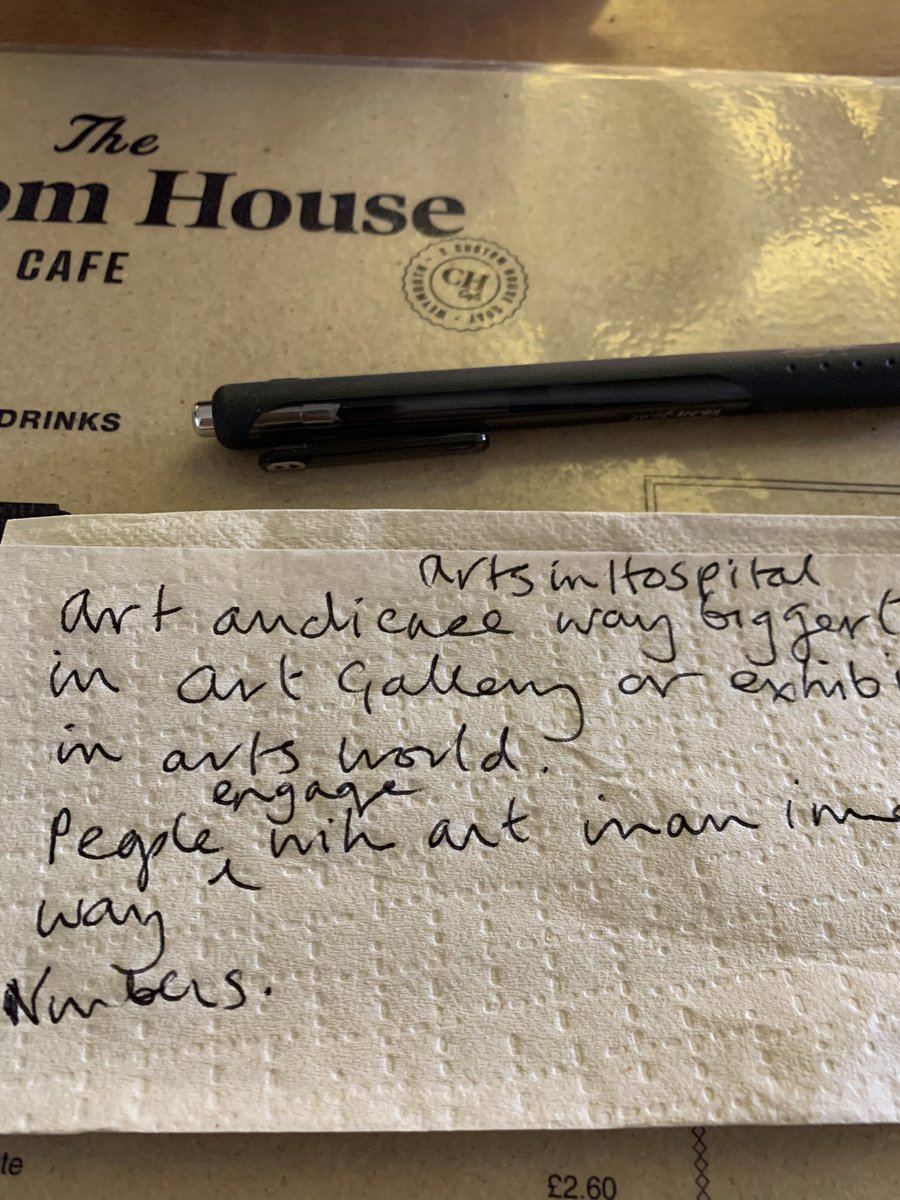 The
om House
CAFE
CUSTOM HOUSE QUAY · WEYMOUTH
CH
DRINKS
arts in Hospital
art audience way bigger t
in art Gallery or exhibi
in arts world.
engage
People with art in an imm
way
Numbers.
te
£2.60